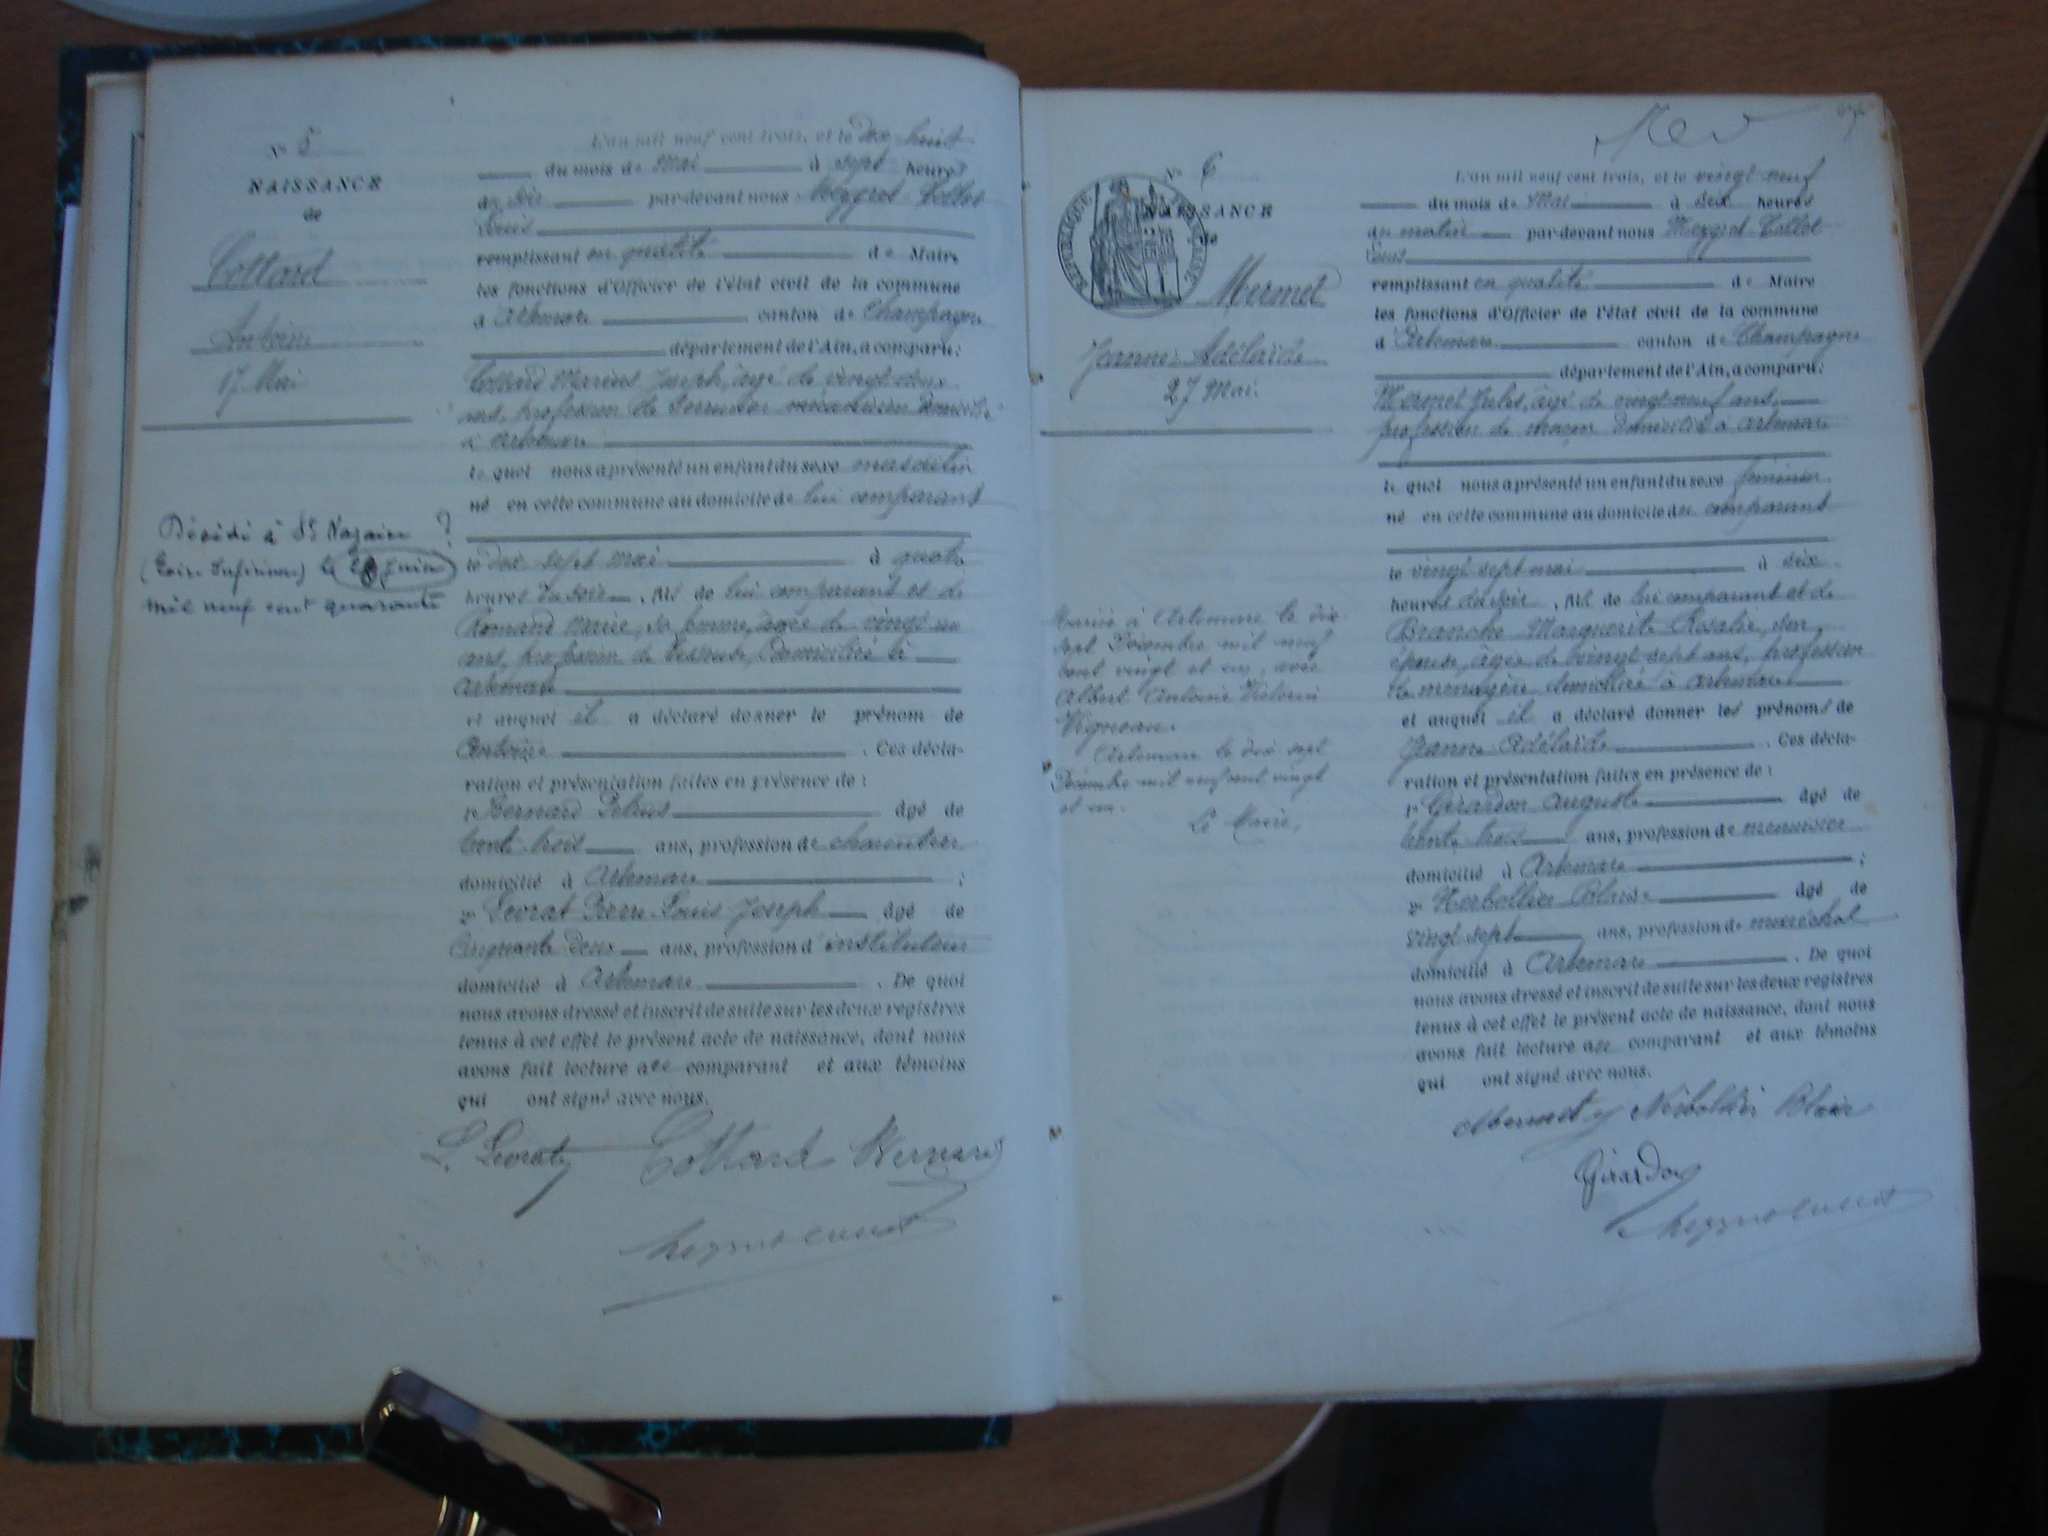 N° 5
NAISSANCE
de
Cottard
Antoine
17 Mai
Décédé à St Nazaire ?
(Loire Inférieure) le 20 juin
mil neuf cent quarante
L'an mil neuf cent trois, et le dix huit
du mois de Mai à sept heures
du soir par-devant nous Meygret-Collet
Louis
remplissant en qualité de Maire
les fonctions d'Officier de l'état civil de la commune
d'Artemare canton de Champagne
département de l'Ain, a comparu:
Cottard Marius Joseph, âgé de vingt deux
ans, profession de serrurier mécanicien domicilié
à Artemare
le quel nous a présenté un enfant du sexe masculin
né en cette commune au domicile de lui comparant
le dix sept mai à quatre
heures du soir, fils de lui comparant et de
Romand Marie, sa femme, âgée de vingt un
ans, profession de domiciliée à
Artemare
et auquel il a déclaré donner le prénom de
Antoine. Ces décla-
ration et présentation faites en présence de:
1° Bernard âgé de
trente trois ans, profession de charcutier
domicilié à Artemare;
2° Levrat Pierre Louis Joseph âgé de
Cinquante deux ans, profession d'instituteur
domicilié à Artemare. De quoi
nous avons dressé et inscrit de suite sur les deux registres
tenus à cet effet le présent acte de naissance, dont nous
avons fait lecture au comparant et aux témoins
qui ont signé avec nous.
L. Levrat Cottard Bernard
N° 6
RÉPUBLIQUE
NAISSANCE
de
Mermet
Jeanne-Adélaïde
27 Mai.
Mariée à Artemare le dix
sept Décembre mil neuf
cent vingt et un, avec
Albert Antoine
Vigneau.
Artemare le dix sept
Décembre mil neuf cent vingt
et un.
Le Maire,
L'an mil neuf cent trois, et le vingt neuf
du mois de Mai à dix heures
du matin par-devant nous Meygret-Collet
Louis
remplissant en qualité de Maire
les fonctions d'Officier de l'état civil de la commune
d'Artemare canton de Champagne
département de l'Ain, a comparu:
Mermet Jules, âgé de vingt neuf ans,
profession de maçon domicilié à Artemare
le quel nous a présenté un enfant du sexe féminin
né en cette commune au domicile du comparant
le vingt sept mai à dix
heures du soir, fils de lui comparant et de
Branche Marguerite Rosalie, son
épouse, âgée de vingt sept ans, profession
de ménagère domiciliée à Artemare
et auquel il a déclaré donner les prénoms de
Jeanne-Adélaïde. Ces décla-
ration et présentation faites en présence de:
1° Girardon Auguste âgé de
trente trois ans, profession de menuisier
domicilié à Artemare;
2° Blaise âgé de
vingt sept ans, profession de maréchal
domicilié à Artemare. De quoi
nous avons dressé et inscrit de suite sur les deux registres
tenus à cet effet le présent acte de naissance, dont nous
avons fait lecture au comparant et aux témoins
qui ont signé avec nous.
Mermet
Girardon